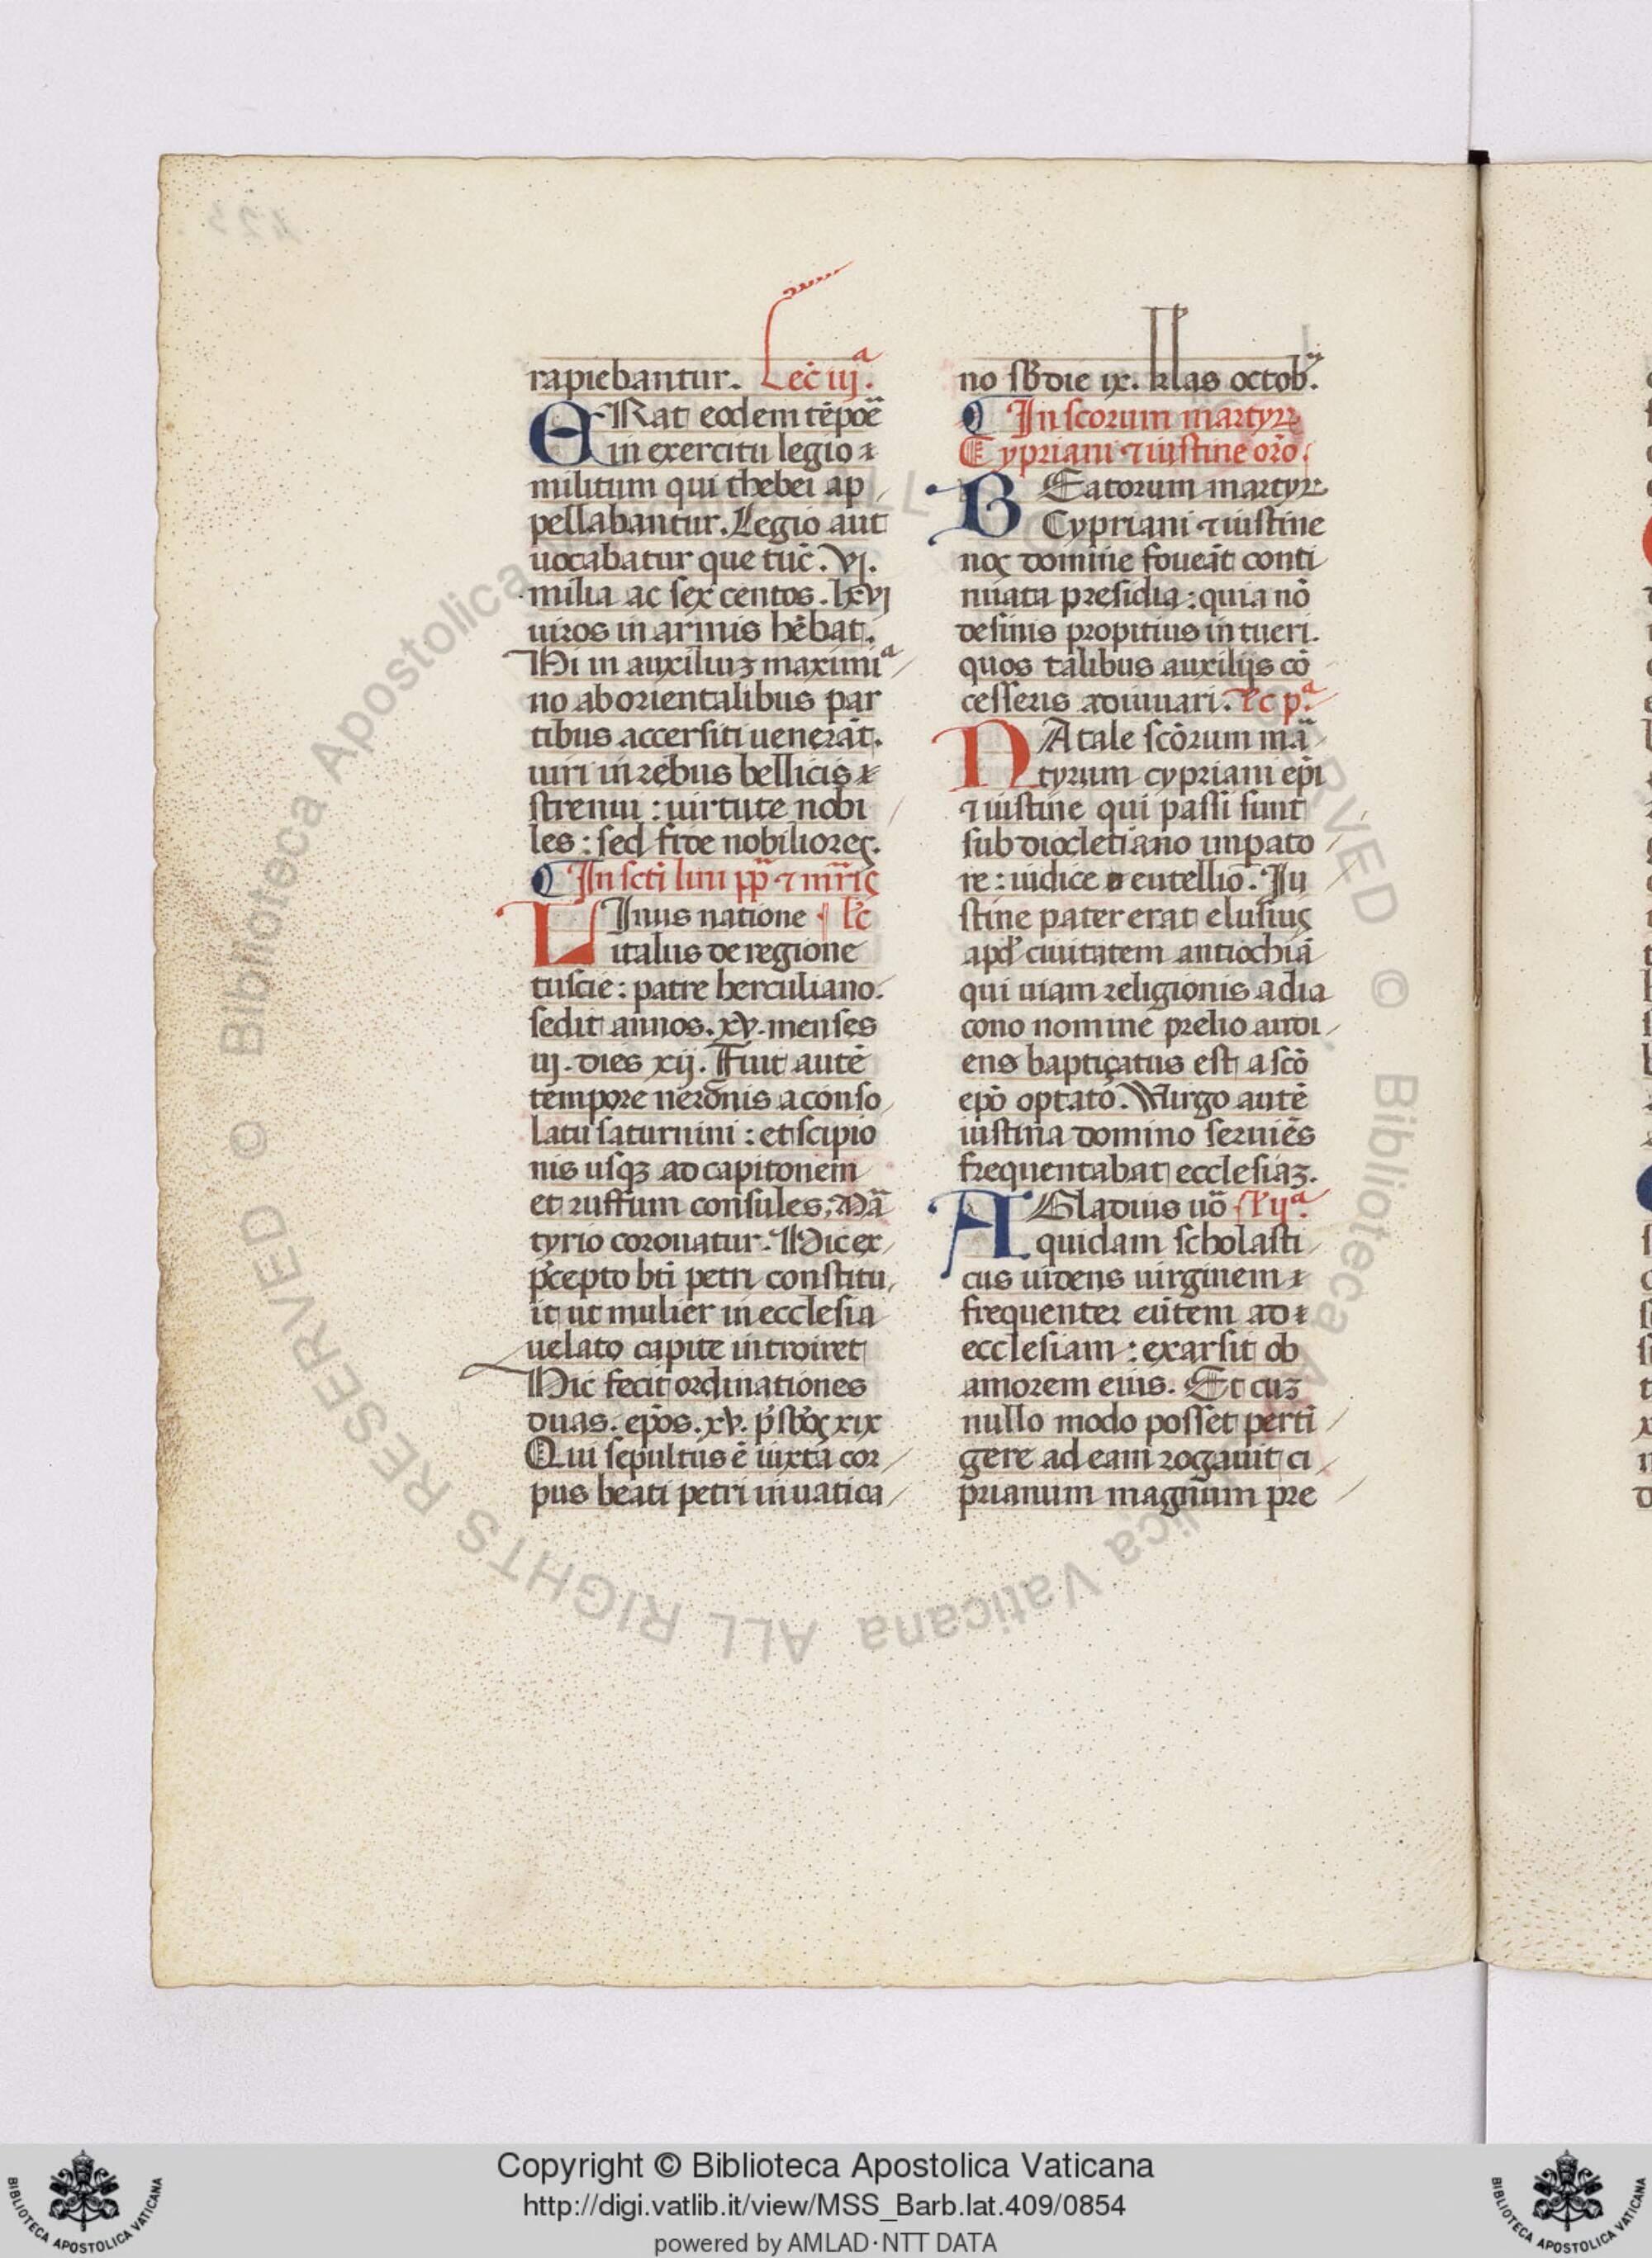 rapiebantur. Lec̄ iijª.
ERat eodem tēpoꝛe
in exercitu legio
militum qui thebei ap
pellabantur. Legio aūt
uocabatur que tūc. vj.
milia ac sex centos. lxvj
uiros in armis hēbat.
Hi in auxiliuꝫ maximiª
no ab orientalibus par
tibus accersiti uenerāt.
uiri in rebus bellicis
strenui : uirtute nobi
les : sed fide nobiliores.
¶ In scti lini pp̄ ⁊ mr̄is
LInus natione lc̄
italus de regione
tuscie : patre herculiano.
sedit annos. xv. menses
iij. dies xij. Fuit autē
tempore neronis a conso
latu saturnini : et scipio
nis usqꝫ ad capitonem
et ruffum consules, Mā
tyrio coronatur. Hic ex
p̄cepto bti petri constitu
it ut mulier in ecclesia
uelato capite introiret
Hic fecit ordinationes
duas. ep̄os. xv. p̄sb̄os xix
Qui sepultus ē iuxta cor
pus beati petri in uatica
no sb̄ die ix. klas octob̄.
¶ In scorum martyrꝝ
Cypriani ⁊ iustine or̄o.
BEatorum martyrꝝ
Cypriani ⁊ iustine
nos domine foueāt conti
nuata presidia : quia nō
desinis propitius intueri.
quos talibus auxilijs cō
cesseris adiuuari. lc̄ pª.
NAtale scōrum mā
tyrum cypriani ep̄i
⁊ iustine qui passi sunt
sub diocletiano impato
re : iudice eutellio. Iu
stine pater erat elusius
apd̄ ciuitatem antiochiā
qui uiam religionis a dia
cono nomine prelio audi
ens baptiçatus est a scō
ep̄o optato. Virgo autē
iustina domino seruiēs
frequentabat ecclesiaꝫ.
AGladius uō lc̄ ijª.
quidam scholasti
cus uidens uirginem
frequenter eūtem ad
ecclesiam : exarsit ob
amorem eius. Et cuꝫ
nullo modo posset perti
gere ad eam rogauit ci
prianum magnum pre
© Biblioteca Apostolica Vaticana ALL RIGHTS RESERVED
Copyright © Biblioteca Apostolica Vaticana
http://digi.vatlib.it/view/MSS_Barb.lat.409/0854
powered by AMLAD·NTT DATA
BIBLIOTECA APOSTOLICA VATICANA
BIBLIOTECA APOSTOLICA VATICANA